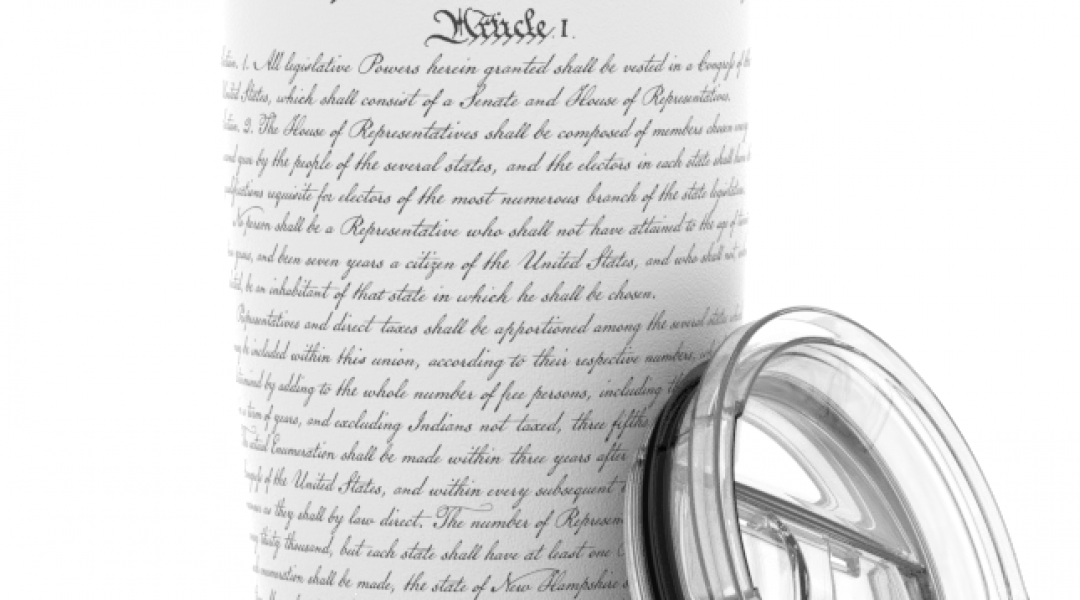 Article. I.
1. All legislative Powers herein granted shall be vested in a Congress of the
United States, which shall consist of a Senate and House of Representatives.
2. The House of Representatives shall be composed of members chosen every
year by the people of the several states, and the electors in each state shall have
requisite for electors of the most numerous branch of the state legislature.
No person shall be a Representative who shall not have attained to the age of
years, and been seven years a citizen of the United States, and who shall not,
be an inhabitant of that state in which he shall be chosen.
Representatives and direct taxes shall be apportioned among the several states
be included within this union, according to their respective numbers,
by adding to the whole number of free persons, including
a term of years, and excluding Indians not taxed, three fifths
Enumeration shall be made within three years after
of the United States, and within every subsequent
as they shall by law direct. The number of
thirty thousand, but each state shall have at least one
enumeration shall be made, the state of New Hampshire